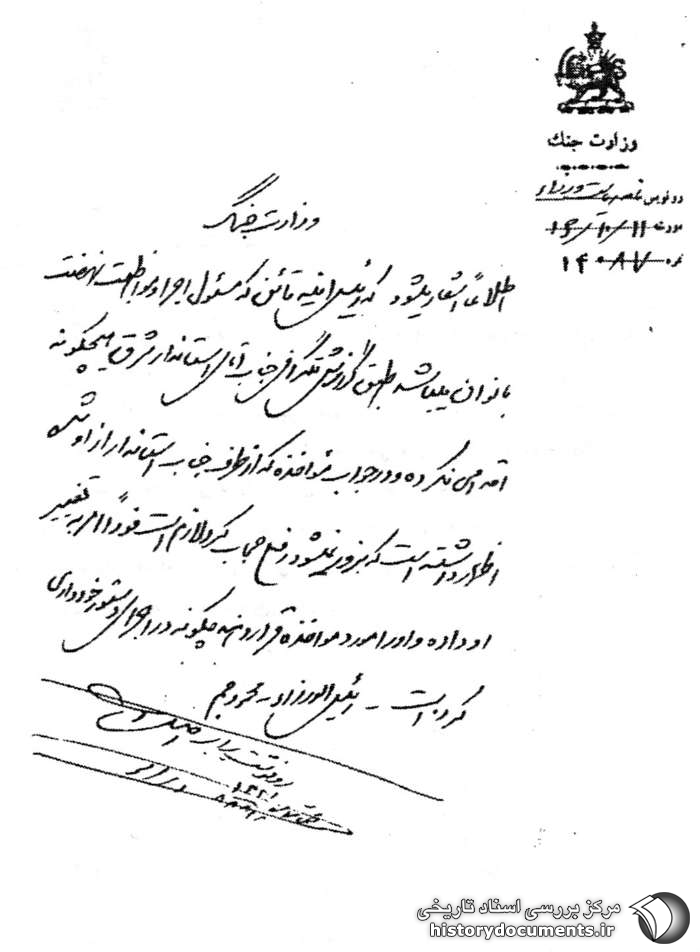 وزارت جنگ
رونویس نامه ریاست وزراء
مورخه ۱۱/۱۰/۱۶
نمره ۱۴۰۸۷
وزارت جنگ
اطلاعاً اشعار میشود که رئیس امنیه قائن که مسئول اجرا و مواظبت نهضت
بانوان میباشد طبق گزارش تلگرافی جناب آقای استاندار شرق هیچگونه
اقدامی نکرده و در جواب مؤاخذه که از طرف جناب استاندار از او شده
اظهار داشته است که بزور نمیشود رفع حجاب کرد لازم است فوراً امر به تغییر
او داده و او را مورد مؤاخذه قرار دهند چگونه در اجرای دستور خودداری
کرده است ـ رئیس الوزراء ـ محمود جم
رونوشت برابر اصل است
مرکز بررسی اسناد تاریخی
historydocuments.ir